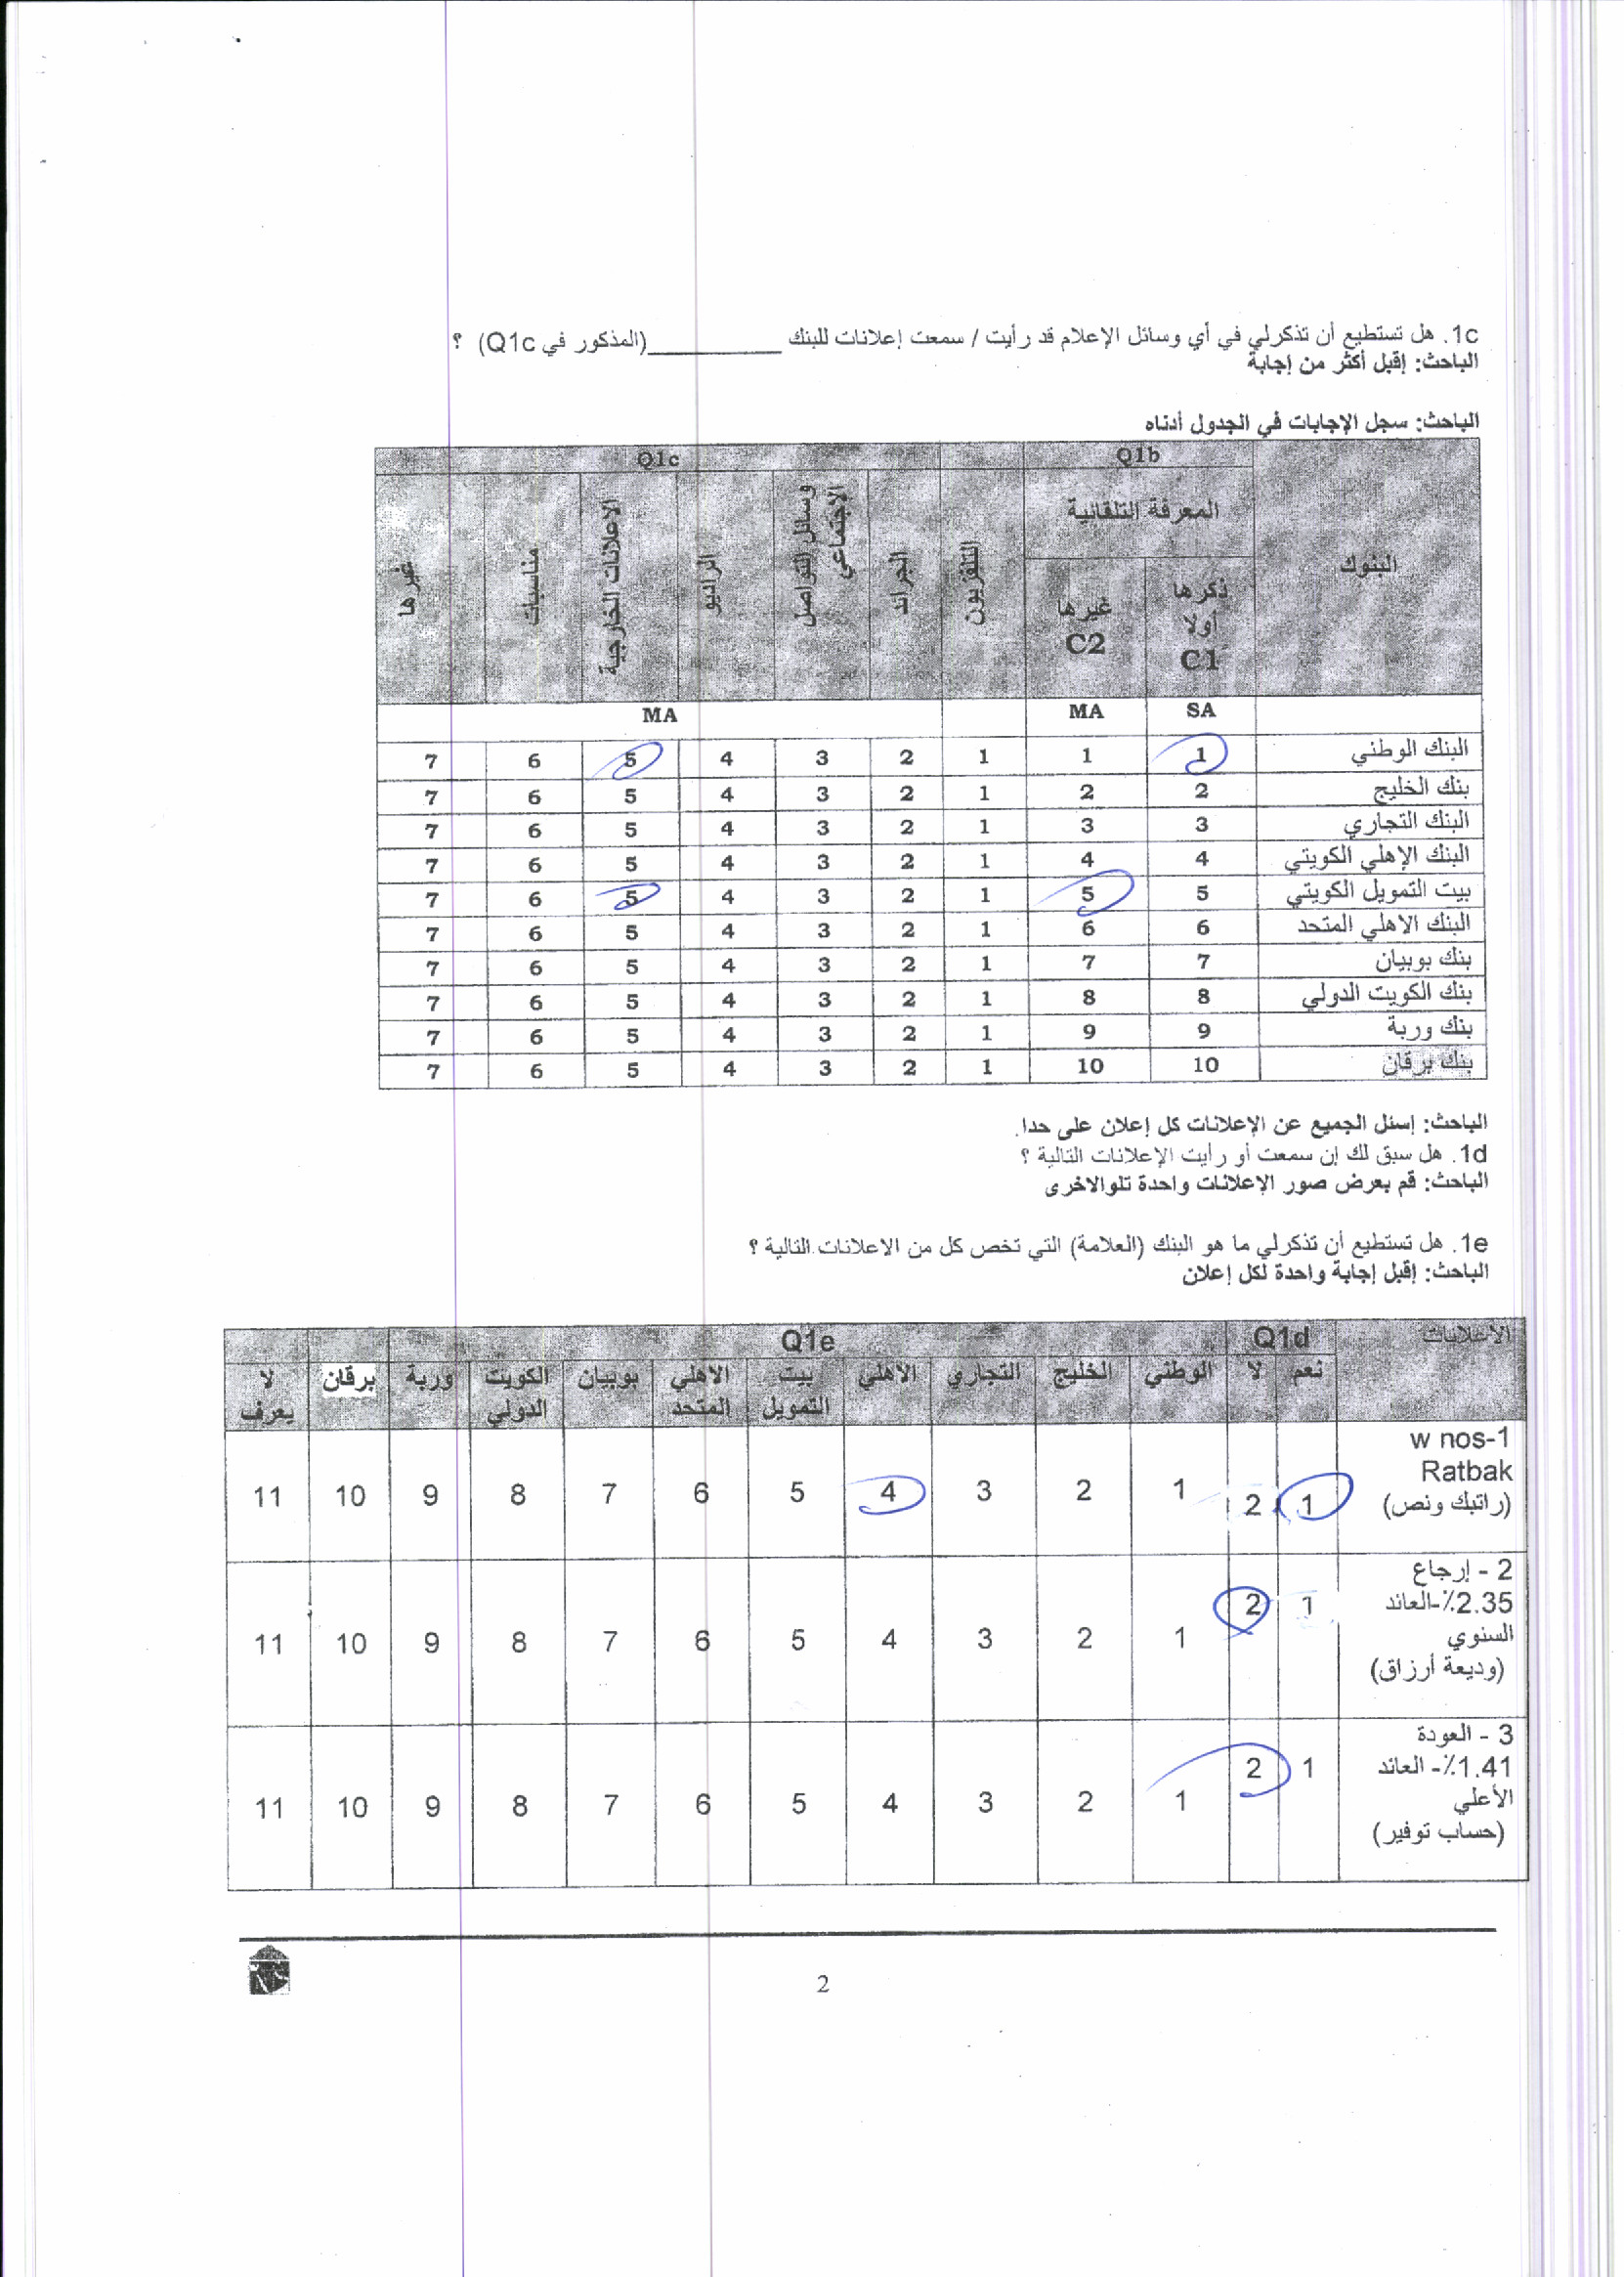 1c. هل تستطيع أن تذكرلي في أي وسائل الإعلام قد رأيت / سمعت إعلانات للبنك ____________(المذكور في Q1c) ؟
الباحث: إقبل أكثر من إجابة
الباحث: سجل الإجابات في الجدول أدناه
البنوك Q1b Q1c
المعرفة التلقائية
ذكرها أولا C1 غيرها C2 التلفزيون الجرائد وسائل التواصل الإجتماعي الراديو الاعلانات الخارجية مناسبات غيرها
SA MA MA
البنك الوطني 1 1 1 2 3 4 5 6 7
بنك الخليج 2 2 1 2 3 4 5 6 7
البنك التجاري 3 3 1 2 3 4 5 6 7
البنك الإهلي الكويتي 4 4 1 2 3 4 5 6 7
بيت التمويل الكويتي 5 5 1 2 3 4 5 6 7
البنك الاهلي المتحد 6 6 1 2 3 4 5 6 7
بنك بوبيان 7 7 1 2 3 4 5 6 7
بنك الكويت الدولي 8 8 1 2 3 4 5 6 7
بنك وربة 9 9 1 2 3 4 5 6 7
بنك برقان 10 10 1 2 3 4 5 6 7
الباحث: إسئل الجميع عن الإعلانات كل إعلان على حدا.
1d. هل سبق لك إن سمعت أو رأيت الإعلانات التالية ؟
الباحث: قم بعرض صور الإعلانات واحدة تلوالاخرى
1e. هل تستطيع أن تذكرلي ما هو البنك (العلامة) التي تخص كل من الاعلانات التالية ؟
الباحث: إقبل إجابة واحدة لكل إعلان
الاعلانات Q1d Q1e
نعم لا الوطني الخليج التجاري الاهلي بيت التمويل الاهلي المتحد بوبيان الكويت الدولي وربة برقان لا يعرف
w nos-1
Ratbak
(راتبك ونص) 1 2 1 2 3 4 5 6 7 8 9 10 11
2 - إرجاع
2.35٪-العائد
السنوي
(وديعة أرزاق) 1 2 1 2 3 4 5 6 7 8 9 10 11
3 - العودة
1.41٪- العائد
الأعلي
(حساب توفير) 1 2 1 2 3 4 5 6 7 8 9 10 11
2